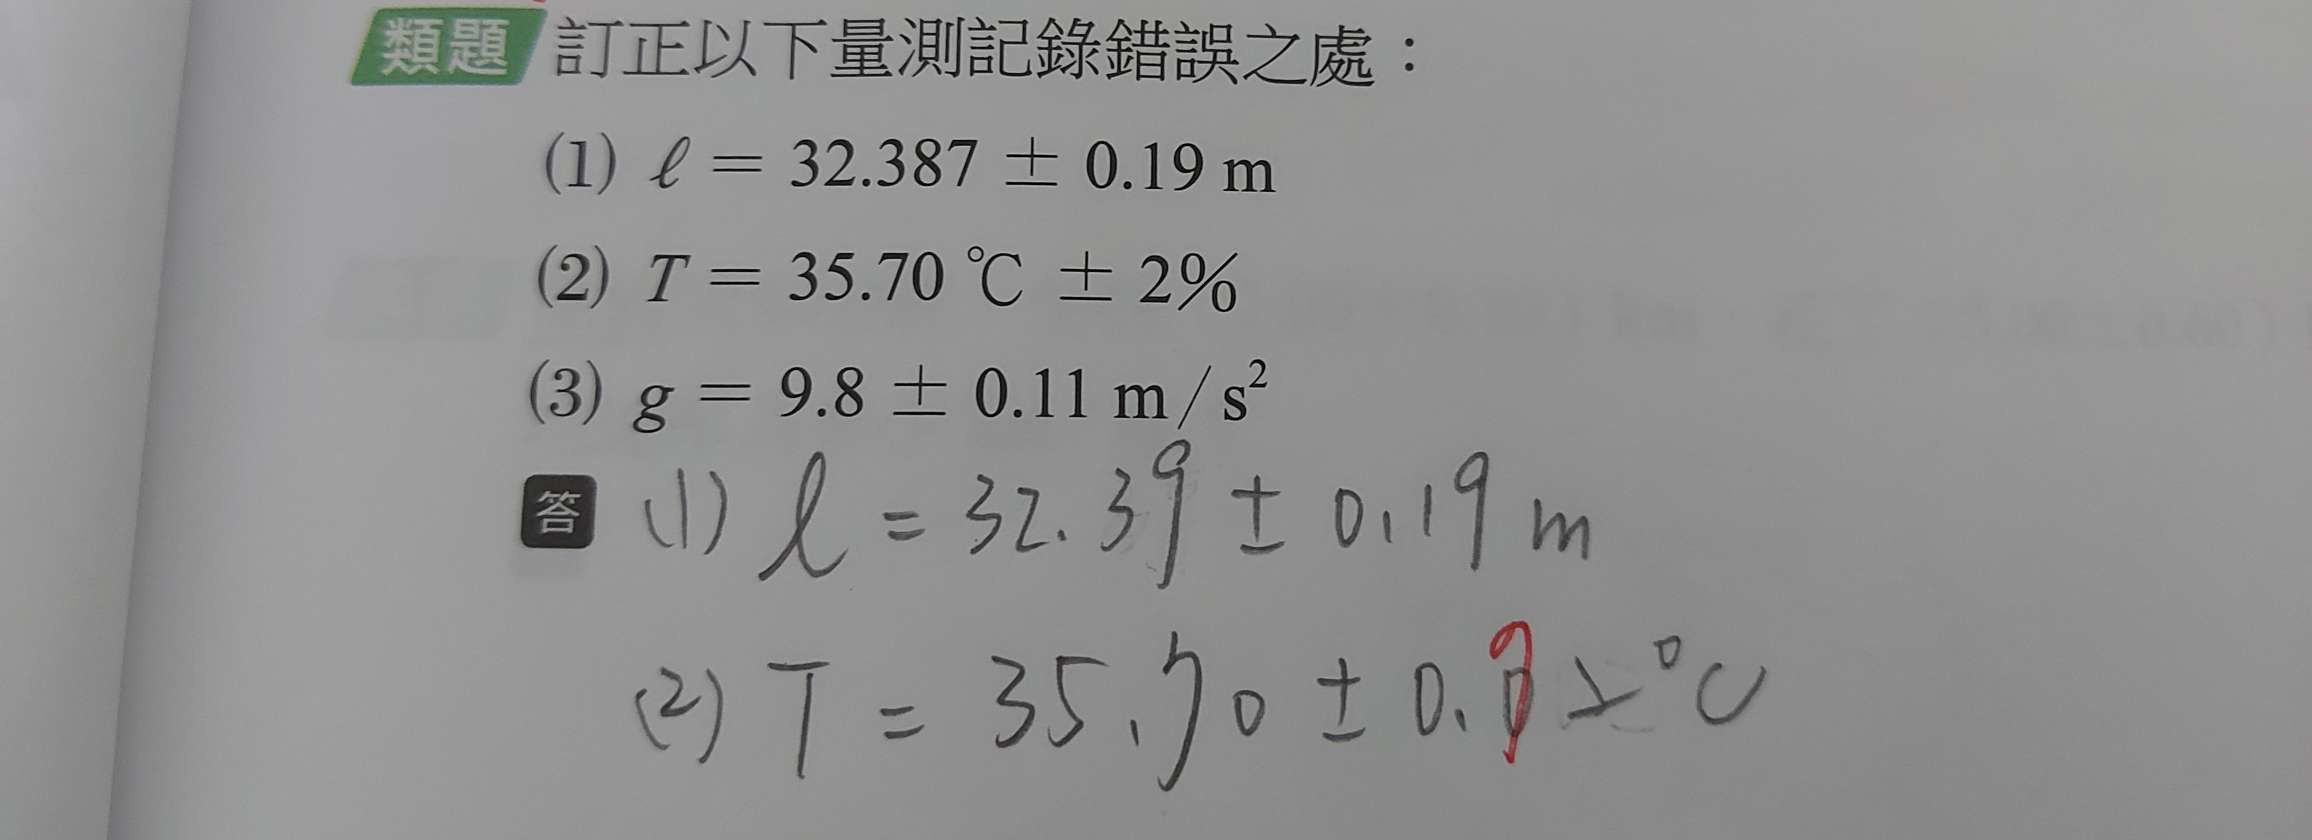 類題 訂正以下量測記錄錯誤之處：
(1) ℓ = 32.387 ± 0.19 m
(2) T = 35.70 ℃ ± 2%
(3) g = 9.8 ± 0.11 m/s²
答 (1) ℓ = 32.39 ± 0.19 m
(2) T = 35.70 ± 0. °C